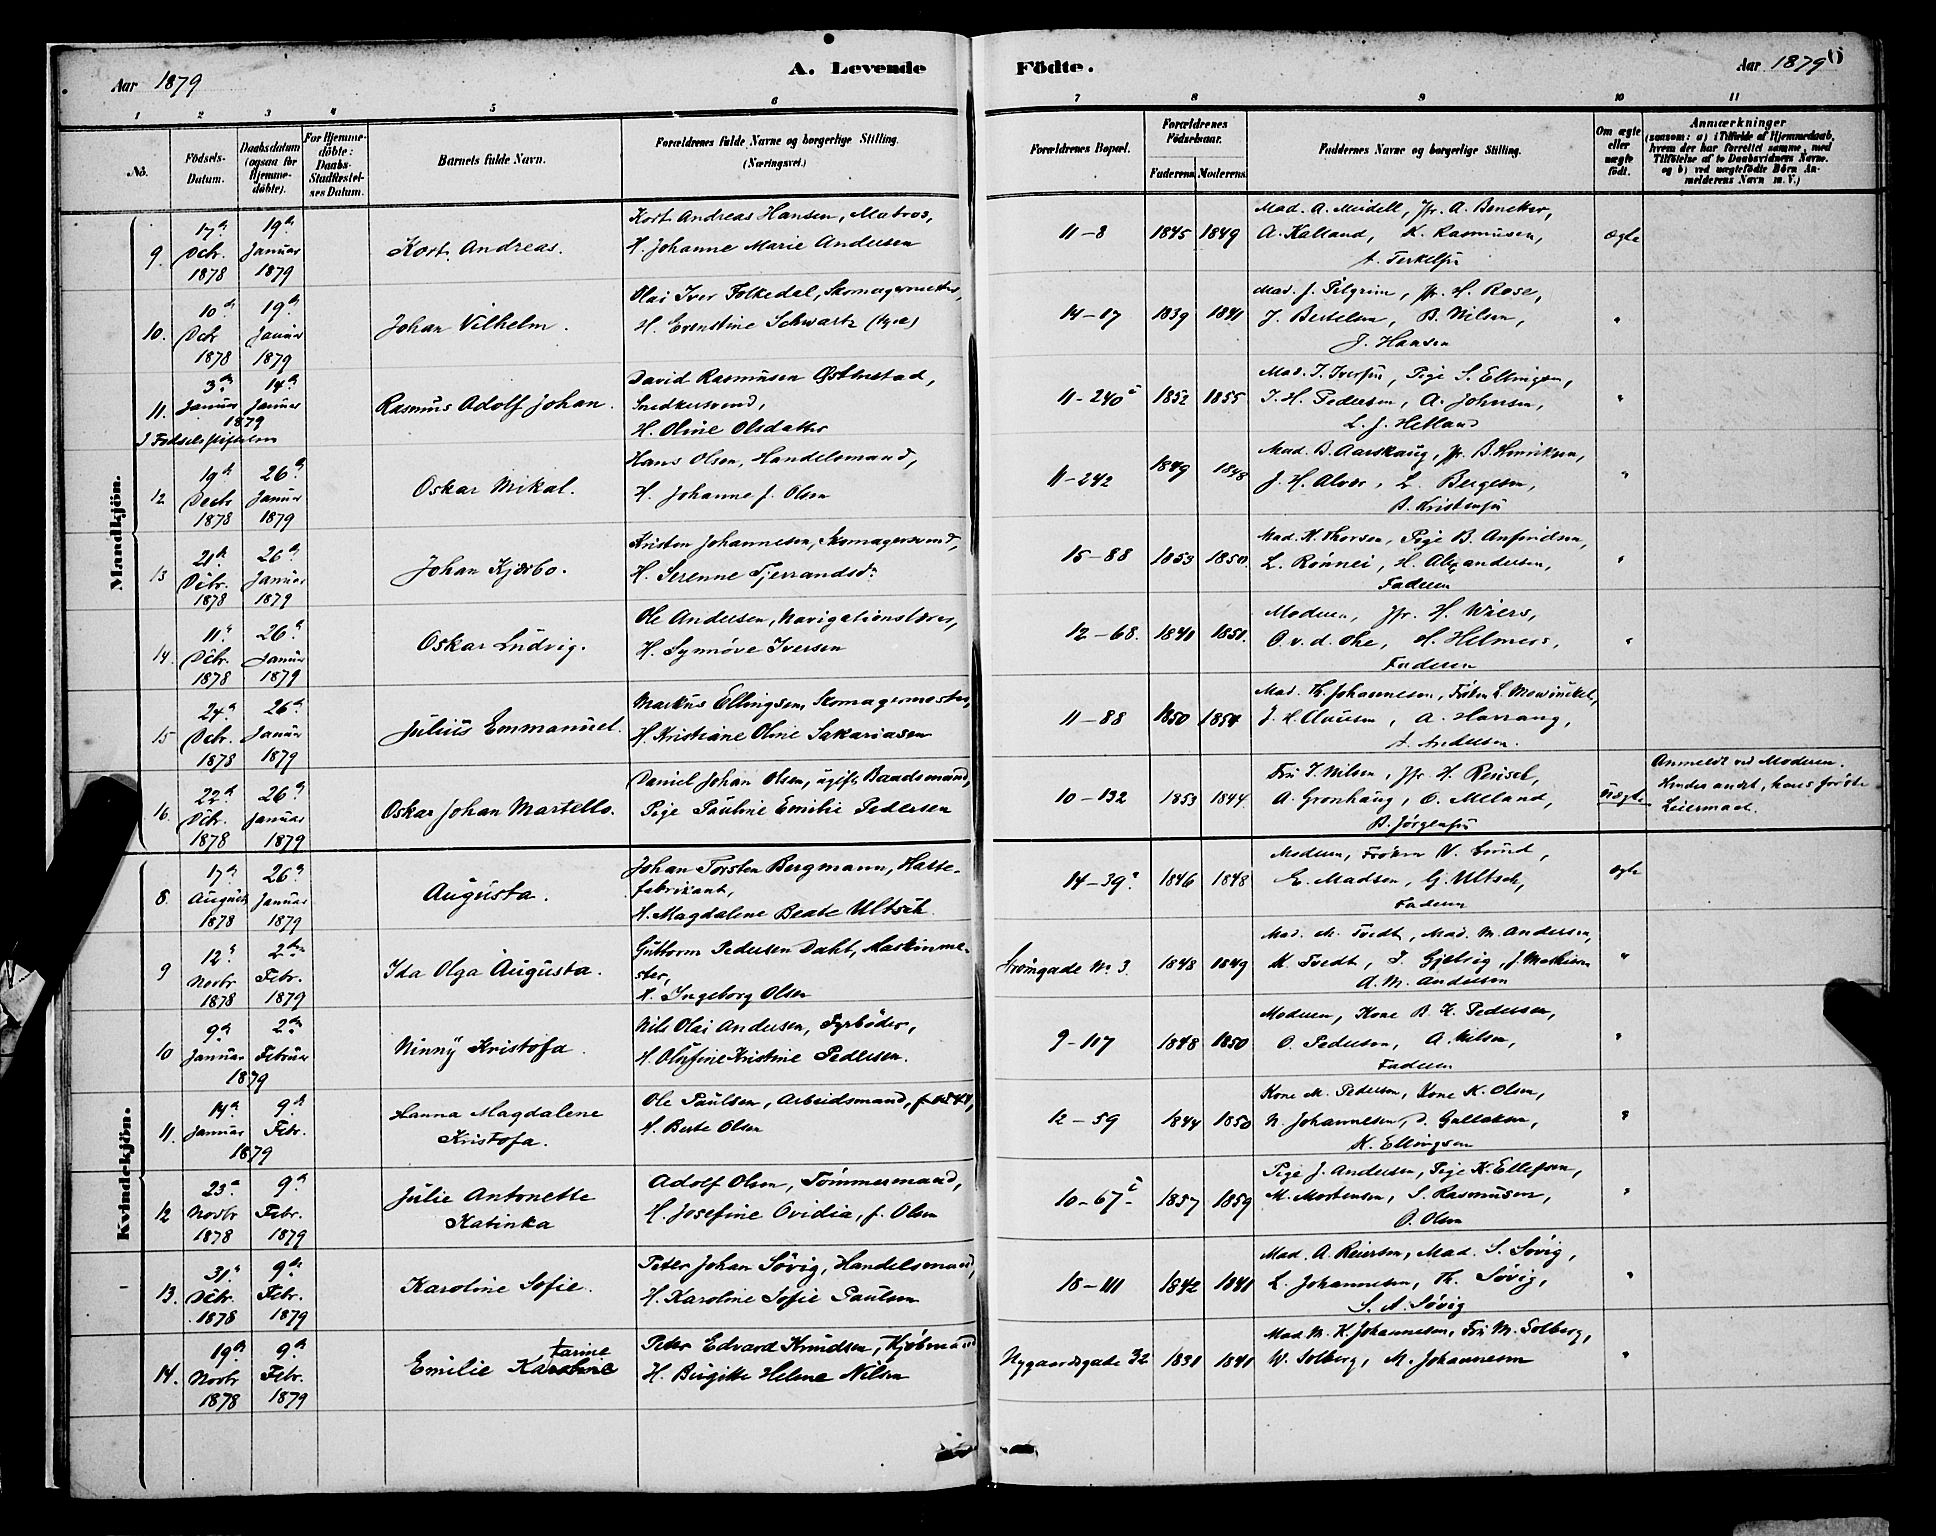 Aar 1879
A. Levende
Födte.
Aar 1879
6
1 2 3 4 5 6
7 8 9 10 11
No.
Födsels-
Datum.
Daabsdatum
(ogsaa for
Hjemme-
döbte).
For Hjemme-
döbte:
Daabs-
Stadfæstel-
ses Datum.
Barnets fulde Navn.
Forældrenes fulde Navne og borgerlige Stilling.
(Næringsvei.)
Forældrenes Bopæl.
Forældrenes
Födselsaar.
Faderens Moderens
Faddernes Navne og borgerlige Stilling.
Om ægte
eller
uægte
födt.
Anmærkninger
(saasom: a) i Tilfælde af Hjemmedaab,
hvem der har forrettet samme, med
Tilföielse af to Daabsvidners Navne.
og b) ved uægtefödte Börn An-
melderens Navn m. V.)
Mandkjön.
9. 17de Dcbr. 1878
19de Januar 1879
Kort Andreas.
Kort Andreas Hansen, Matros,
H. Johanne Marie Andersen
11-8 1845 1849
Mad. A. Meidell, Jfr. A. Beneker,
A. Kalland, K. Rasmusen,
ægte
10. 10de Dcbr 1878
19de Januar 1879
Johan Vilhelm.
Olai Iver Folkedal, Skomagermester,
H. Ernstine Schwartz
14-17 1839 1841
Mad. J. Pilgrim, Jfr. H. Rose,
J. Bertelsen, B. Nilsen,
J. Hansen
"
11. 3die Januar
14de Januar
1879
I Fødselsstiftelsen
Rasmus Adolf Johan.
David Rasmusen Østenstad,
Snedkersvend,
H. Oline Olsdatter
11-240 1852 1855
Mad. I. Iversen, Pige S. Ellingsen,
I. H. Pedersen, A. Johnsen,
L. J. Helland
"
12 19de Decbr 1878
26de Januar 1879
Oskar Mikal.
Hans Olsen, Handelsmand,
H. Johanne f. Olsen
11-242 1849 1848
Mad. B. Aarskaug, Jfr. B. Henriksen,
J. H. Alver, L. Bergesen,
B. Kristensen
"
13 21de Dcbr. 1878
26de Januar 1879
Johan Kjærbo.
Kristen Johannesen, Skomagersvend,
H. Serenne Tjerrandsdr
15-88 1853 1850
Mad. K. Thorsen, Pige B. Anfindsen,
L. Rønnei, H. Alexandersen,
Faderen
"
14. 11te Dcbr. 1878
26de Januar 1879
Oskar Ludvig.
Ole Andersen, Navigationslærer,
H. Synnøve Iversen
12-68. 1840 1851.
Moderen, Jfr. H. Wiers,
O. v. d. Ohe, H. Helmers,
Faderen
"
15 24de Dcbr. 1878
26de Januar 1879
Julius Emmanuel.
Markus Ellingsen, Skomagermester,
H. Kristiane Oline Sakariasen
11-88 1850 1854
Mad. Th. Johannesen, Frøken L. Mowinckel,
A. Harrang,
A. Andersen.
16. 22de Dcbr. 1878
26de Januar 1879
Oskar Johan Martello.
Daniel Johan Olsen, ugift, Baadsmand,
Pige Pauline Emilie Pedersen
10-132 1853 1844.
Fru I. Nilsen, Jfr. H. Reusch,
A. Grønhaug, O. Meland,
B. Jørgensen
uægte
Anmeldt ved Moderen.
Hendes andet, hans første
Leiermaal.
Kvindekjön.
8. 17de August 1878
26de Januar 1879
Augusta.
Johan Torsten Bergmann, Hatte-
fabrikant,
H. Magdalene Beate Ultsch
14-39 1846 1848
Moderen, Frøken V. Grund,
E. Madsen, G. Ultsch,
Faderen
ægte
9 12te Novbr 1878
2den Febr. 1879
Ida Olga Augusta.
Guttorm Pedersen Dahl, Maskinme-
ster,
H. Ingeborg Olsen
Strømgade No 3. 1848 1849
Mad. M. Tvedt, Mad. M. Andersen,
K. Tvedt, T. Gjelvig, J. Mathiesen
A. M. Andersen
"
10 9de Januar
2den Februar
1879
Ninny Kristofa.
Nils Olai Andersen, Fyrbøder,
H. Olufine Kristine Pedersen.
9-117 1848 1850
Moderen, Kone B. K. Pedersen,
O. Pedersen, A. Nilsen,
Faderen
"
11. 14de Januar
9de Febr.
1879
Hanna Magdalene
Kristofa.
Ole Paulsen, Arbeidsmand,
H. Berte Olsen
12-59 1844 1850
Kone M. Pedersen, Kone K. Olsen,
N. Johannesen,
K. Ellingsen
"
12 23de Novbr 1878
9de Febr. 1879
Julie Antonette
Katinka
Adolf Olsen, Tømmermand,
H. Josefine Ovidia, f. Olsen
10-67 1857 1859
Pige J. Andersen, Pige K. Ellefsen,
M. Mortensen, S. Rasmusen,
O. Olsen
"
13. 31te Dcbr. 1878
9de Febr. 1879
Karoline Sofie.
Peter Johan Søvig, Handelsmand,
H. Karoline Sofie Paulsen
18-111 1842 1841
Mad. A. Reiersen, Mad. S. Søvig,
L. Johannesen, Th. Søvig,
S. A. Søvig
"
14. 19de Novbr 1878
9de Febr. 1879
tarine
Emilie Karoline
Peter Edvard Knudsen, Kjøbmand
H. Birgitte Helene Nilsen
Nygaardsgade 32 1831 1841
Mad. M. K. Johannesen, Fru M. Solberg,
W. Solberg, M. Johannesen
"